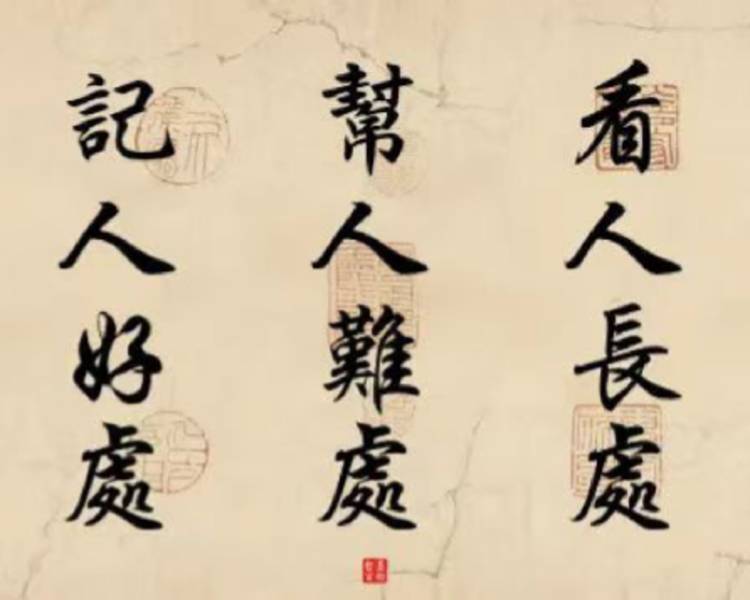 看人長處
幫人難處
記人好處